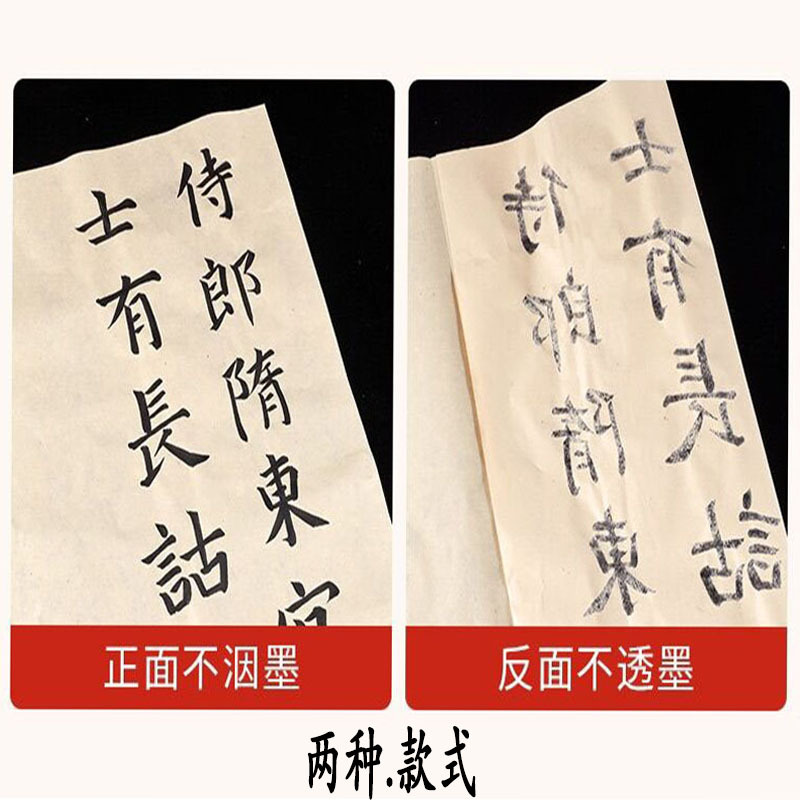 侍郎隋東
士有長詁
正面不洇墨
侍郎隋東
士有長詁
反面不透墨
两种.款式